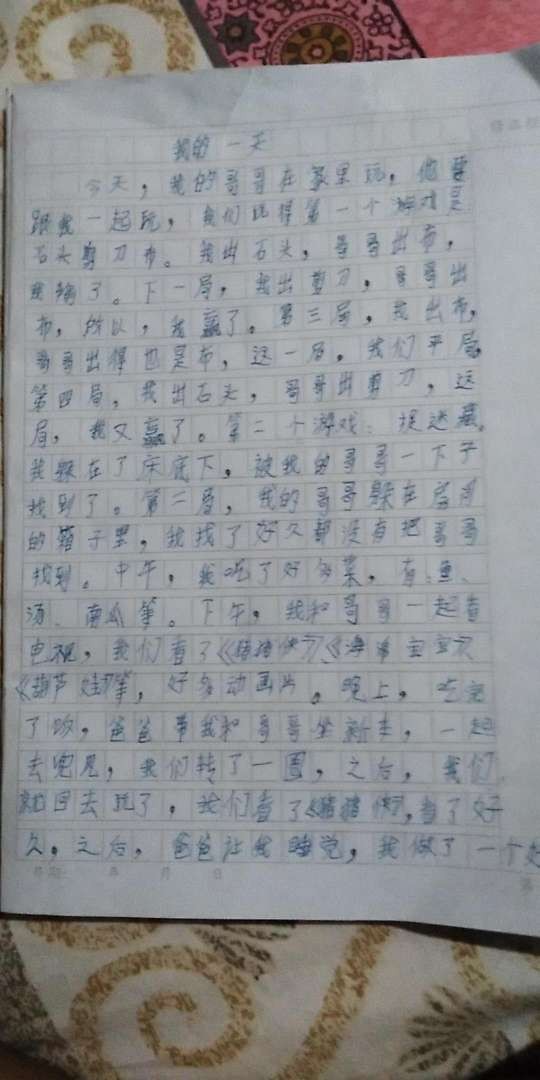 我的一天
今天，我的哥哥在家里玩，他要
跟我一起玩，我们玩得第一个游戏是
石头剪刀布。我出石头，哥哥出布，
我输了。下一局，我出剪刀，哥哥出
布，所以，我赢了。第三局，我出布，
哥哥出得也是布，这一局，我们平局。
第四局，我出石头，哥哥出剪刀，这
局，我又赢了。第二个游戏：捉迷藏。
我躲在了床底下，被我的哥哥一下子
找到了。第二局，我的哥哥躲在
的箱子里，我找了好久都没有把哥哥
找到。中午，我吃了好多菜，有：鱼、
汤、南瓜等。下午，我和哥哥一起看
电视，我们看了《猪猪侠》、《海
《葫芦娃》等，好多动画片。晚上，吃完
了饭，爸爸带我和哥哥坐新车，一起
去兜风，我们转了一圈，之后，我们
就回去玩了，我们看了《猪猪侠》，看了好
久，之后，爸爸让我睡觉，我做了一个好
年 月 日
第